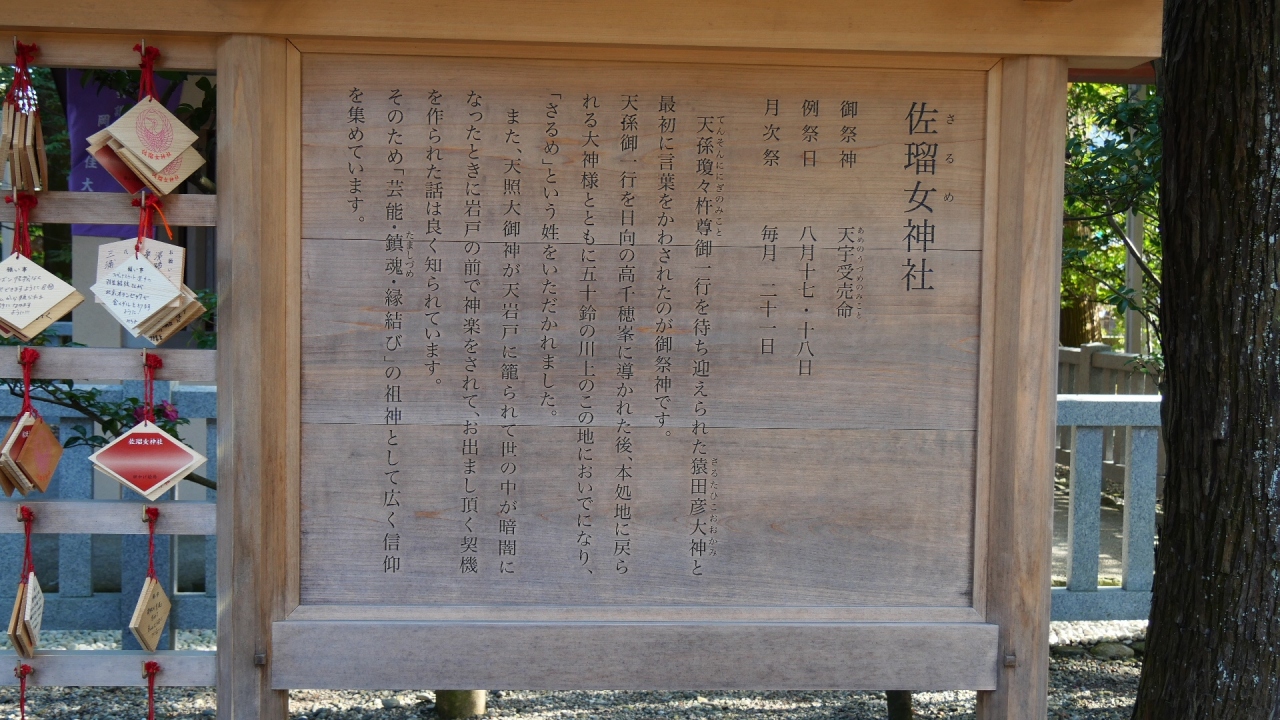 佐瑠女神社
さるめ
御祭神 天宇受売命
あめのうづめのみこと
例祭日 八月十七・十八日
月次祭 毎月 二十一日
天孫瓊々杵尊御一行を待ち迎えられた猿田彦大神と
てんそんににぎのみこと
さるたひこおおかみ
最初に言葉をかわされたのが御祭神です。
天孫御一行を日向の高千穂峯に導かれた後、本処地に戻ら
れる大神様とともに五十鈴の川上のこの地においでになり、
「さるめ」という姓をいただかれました。
また、天照大御神が天岩戸に籠られて世の中が暗闇に
なったときに岩戸の前で神楽をされて、お出まし頂く契機
を作られた話は良く知られています。
そのため「芸能・鎮魂・縁結び」の祖神として広く信仰
たましづめ
を集めています。
佐瑠女神社
佐瑠女神社
願い事